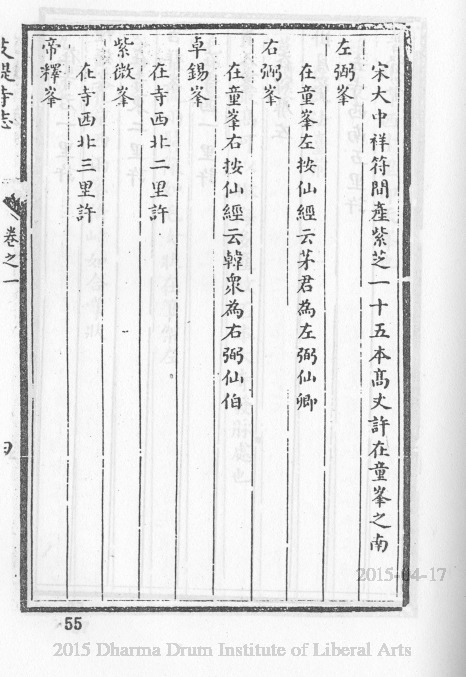 宋大中祥符間產紫芝一十五本高丈許在童峯之南
左弼峯
在童峯左按仙經云茅君為左弼仙卿
右弼峯
在童峯右按仙經云韓衆為右弼仙伯
卓錫峯
在寺西北二里許
紫微峯
在寺西北三里許
帝釋峯
支提寺志
卷之一
55
2015-04-17
2015 Dharma Drum Institute of Liberal Arts